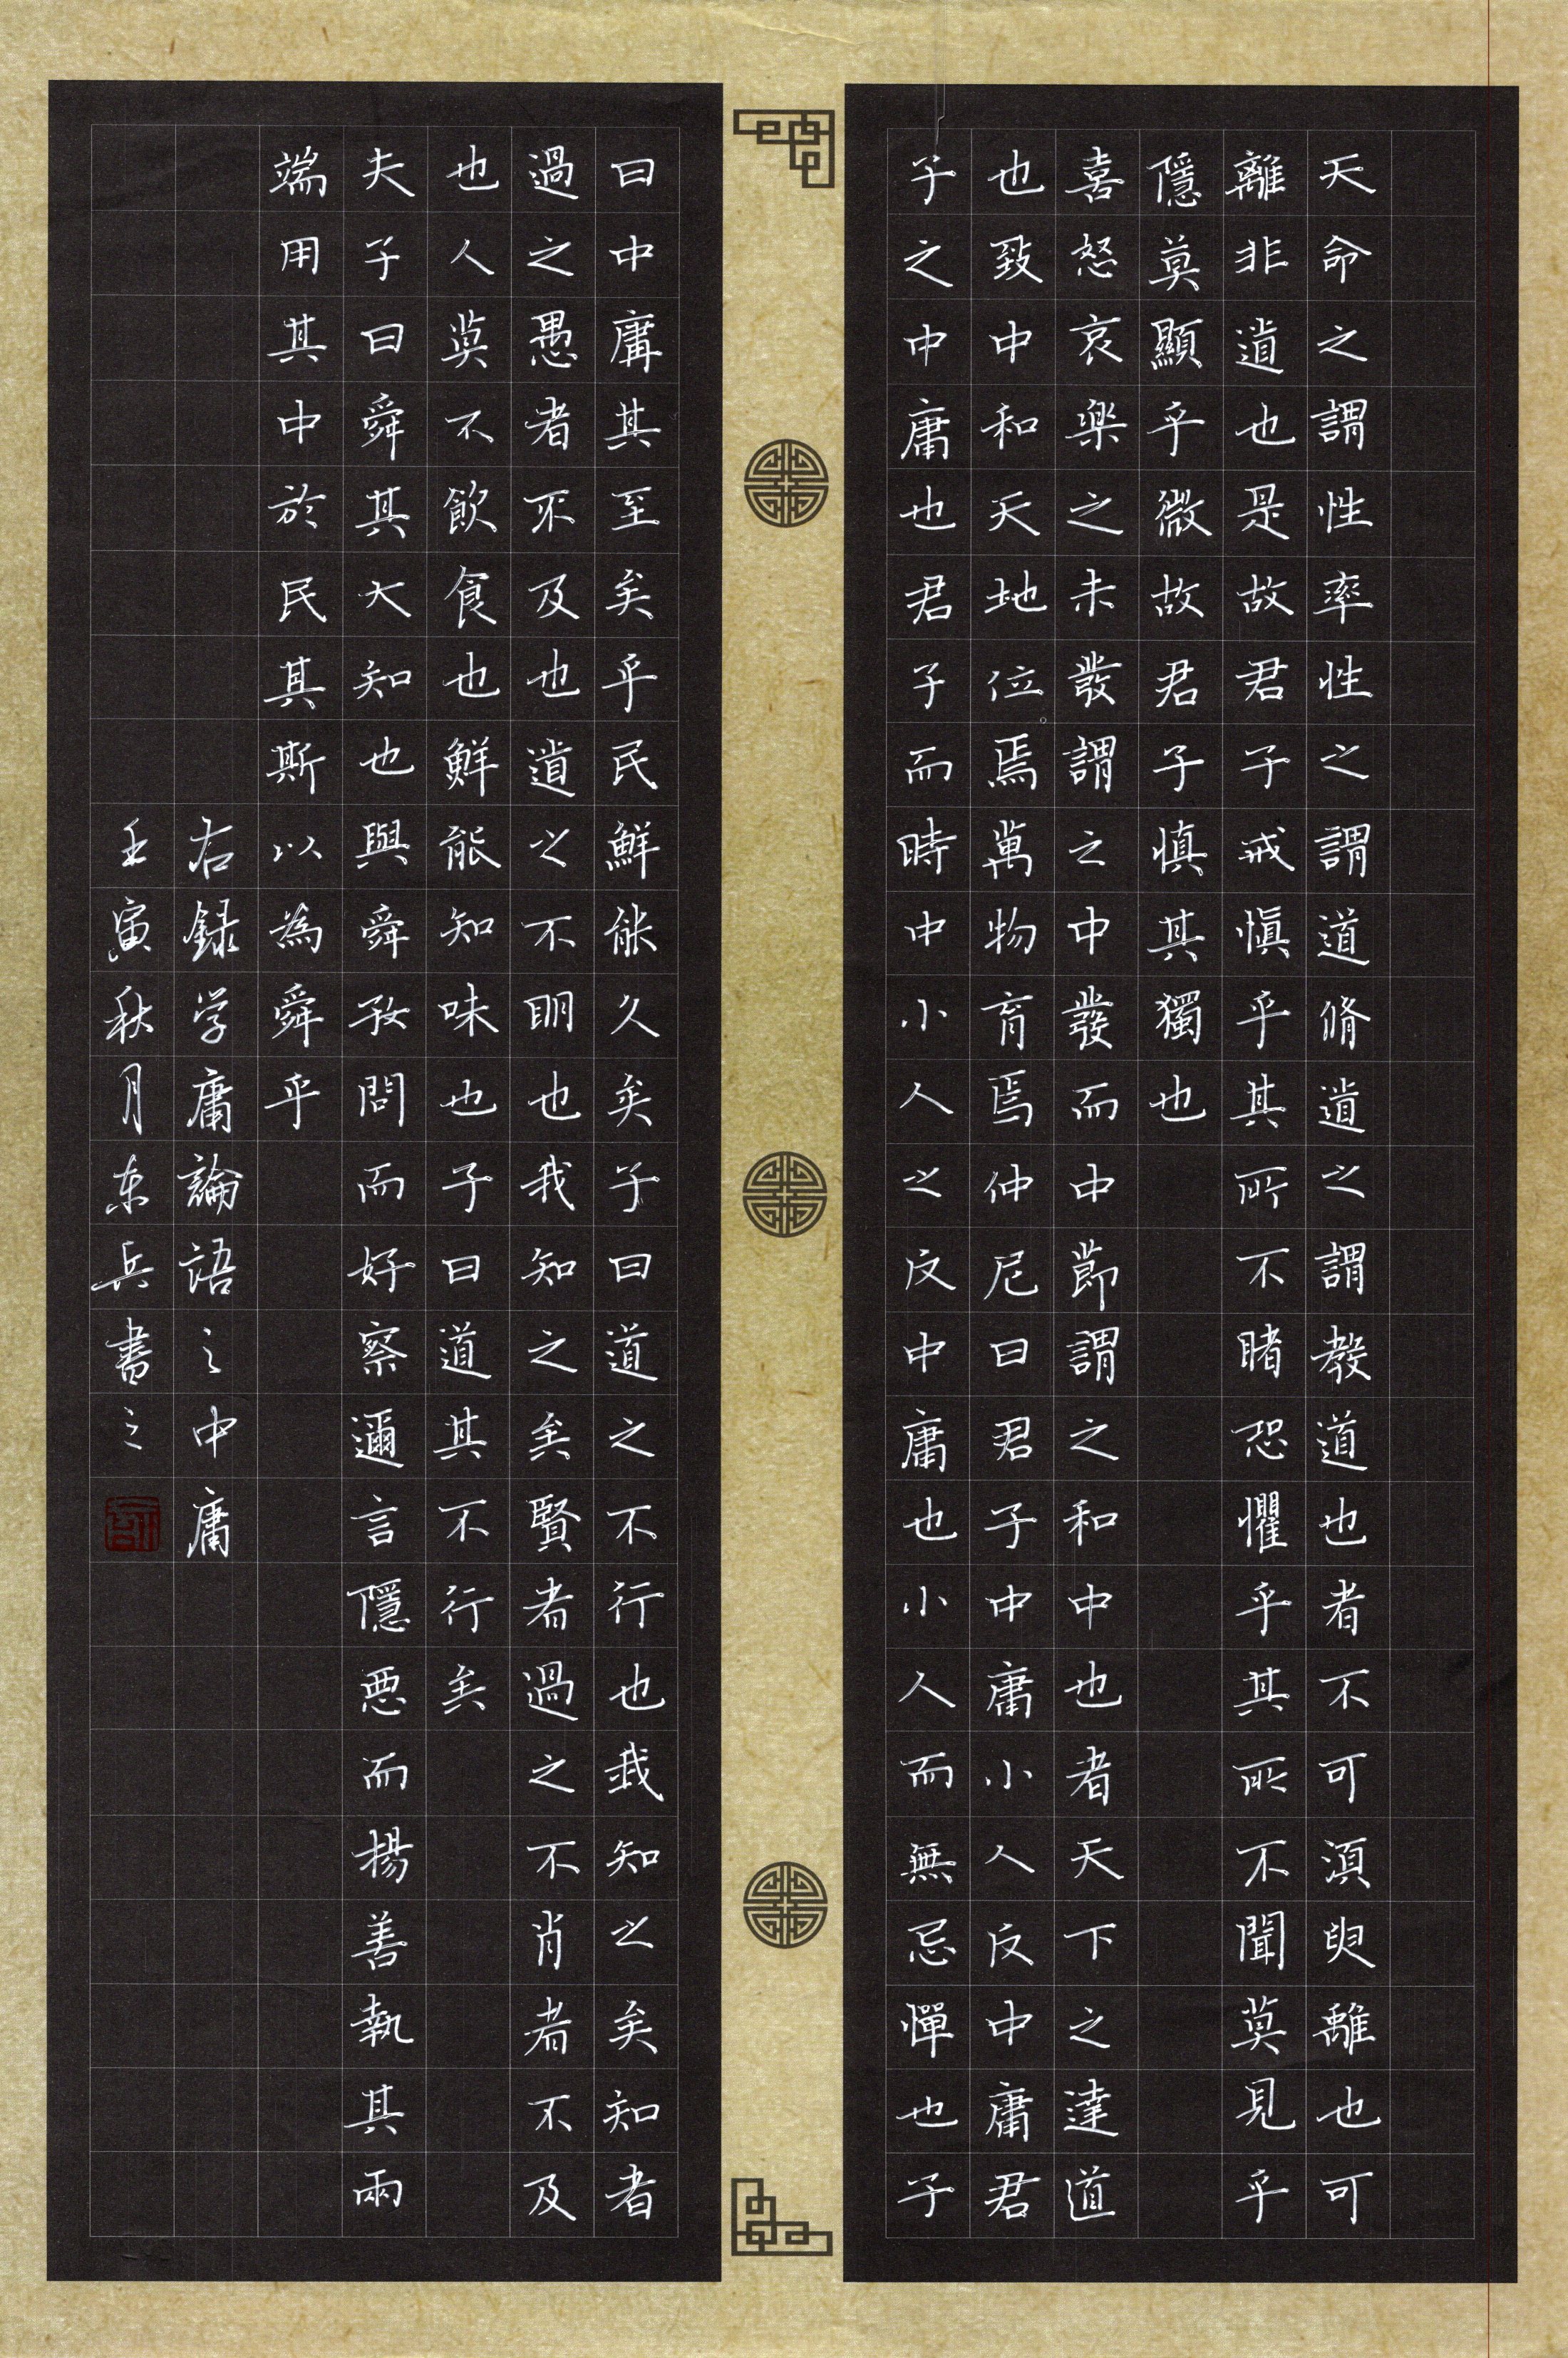 天命之謂性率性之謂道脩道之謂教道也者不可須臾離也可
離非道也是故君子戒慎乎其所不睹恐懼乎其所不聞莫見乎
隱莫顯乎微故君子慎其獨也
喜怒哀楽之未發謂之中發而中節謂之和中也者天下之達道
也致中和天地位焉萬物育焉仲尼曰君子中庸小人反中庸君
子之中庸也君子而時中小人之反中庸也小人而無忌憚也子
曰中庸其至矣乎民鮮能久矣子曰道之不行也我知之矣知者
過之愚者不及也道之不明也我知之矣賢者過之不肖者不及
也人莫不飲食也鮮能知味也子曰道其不行矣
夫子曰舜其大知也與舜好問而好察邇言隱悪而揚善執其兩
端用其中於民其斯以為舜乎
右録学庸論語之中庸
壬寅秋月东兵書之